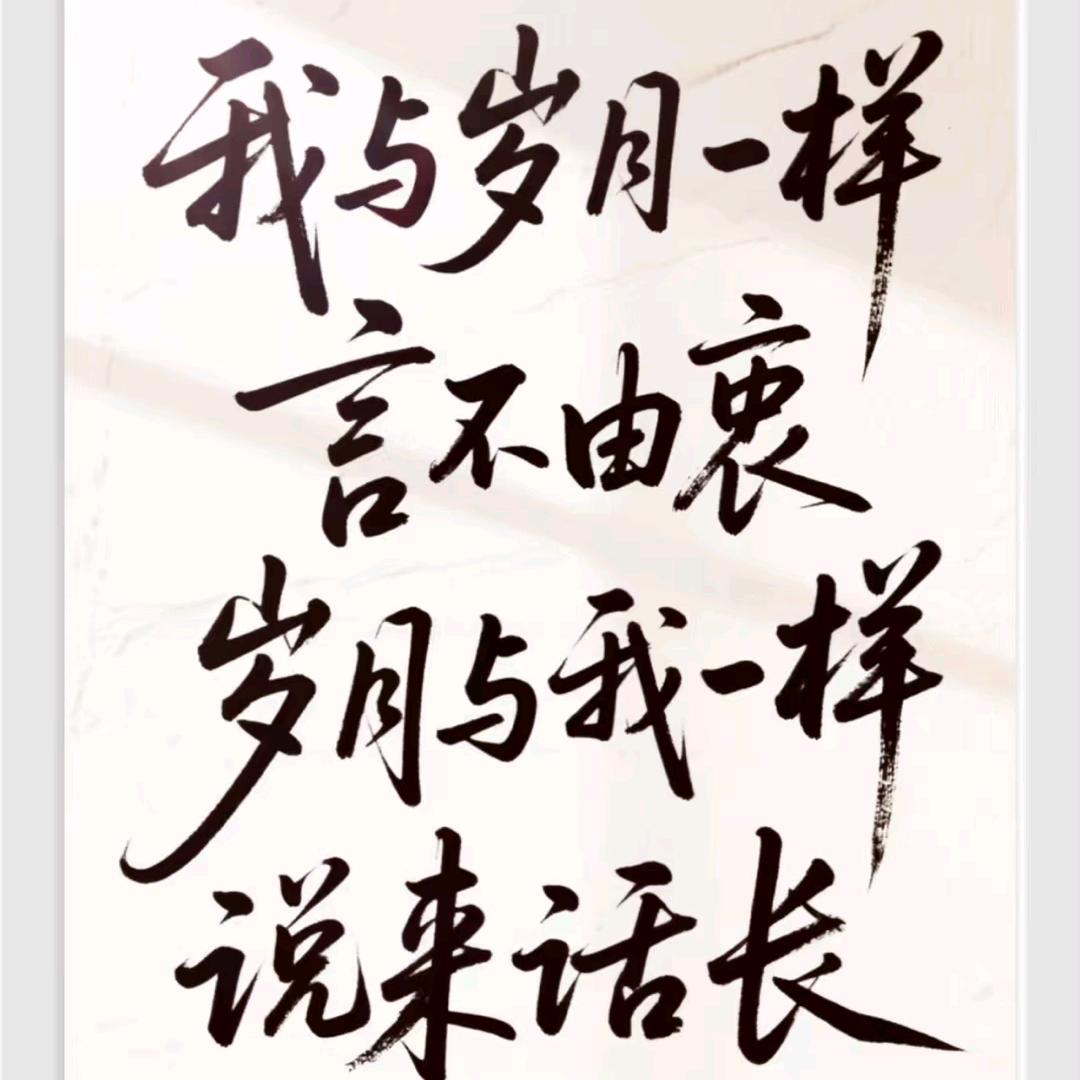 我与岁月一样
言不由衷
岁月与我一样
说来话长